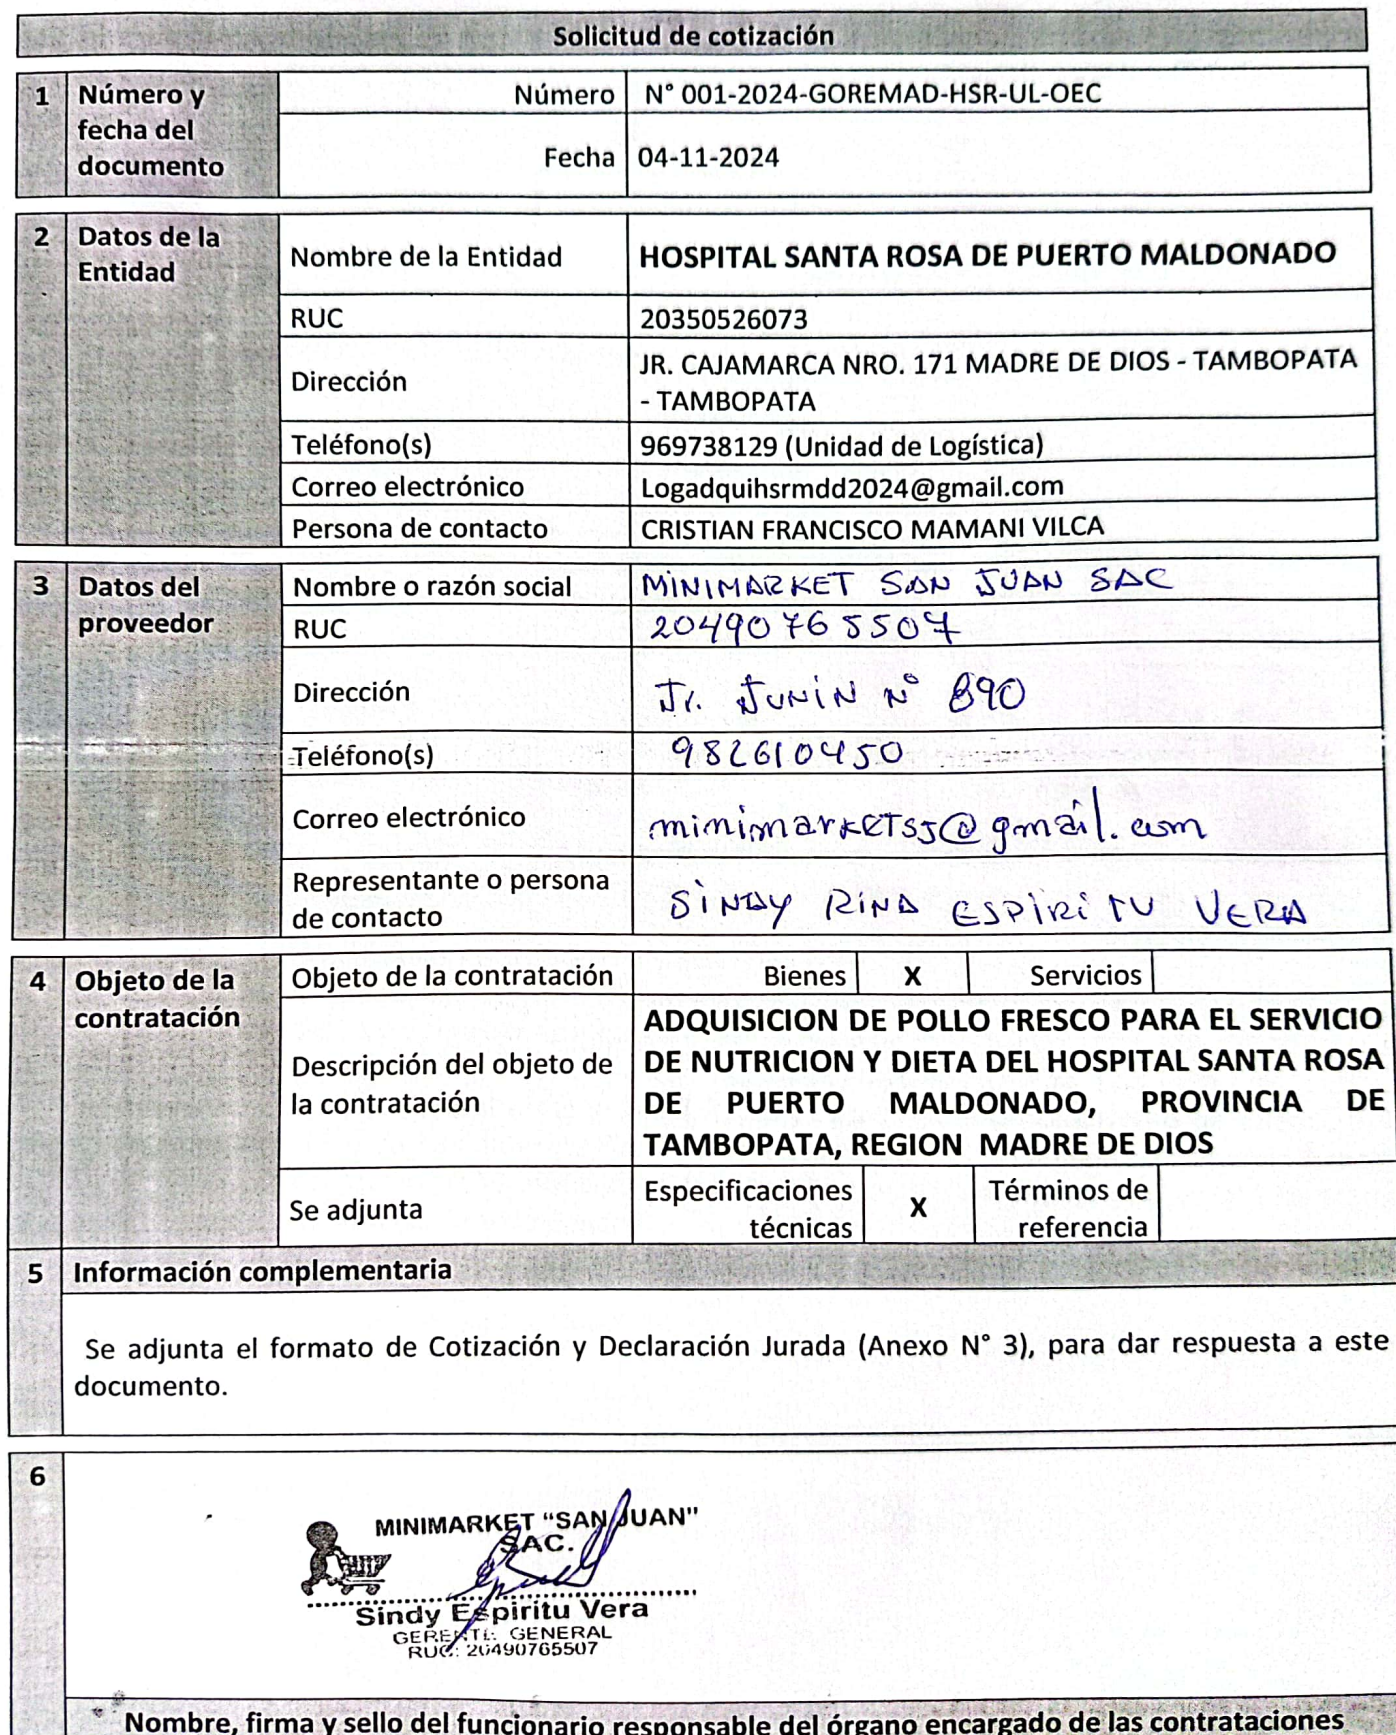 Solicitud de cotización
1 Número y fecha del documento
Número N° 001-2024-GOREMAD-HSR-UL-OEC
Fecha 04-11-2024
2 Datos de la Entidad
Nombre de la Entidad HOSPITAL SANTA ROSA DE PUERTO MALDONADO
RUC 20350526073
Dirección JR. CAJAMARCA NRO. 171 MADRE DE DIOS - TAMBOPATA
- TAMBOPATA
Teléfono(s) 969738129 (Unidad de Logística)
Correo electrónico Logadquihsrmdd2024@gmail.com
Persona de contacto CRISTIAN FRANCISCO MAMANI VILCA
3 Datos del proveedor
Nombre o razón social MINIMARKET SAN JUAN SAC
RUC 20490765507
Dirección Jr. JUNIN N° 890
Teléfono(s) 982610450
Correo electrónico minimarketsj@gmail.com
Representante o persona de contacto SINDY RINA ESPIRITU VERA
4 Objeto de la contratación
Objeto de la contratación Bienes X Servicios
Descripción del objeto de la contratación
ADQUISICION DE POLLO FRESCO PARA EL SERVICIO
DE NUTRICION Y DIETA DEL HOSPITAL SANTA ROSA
DE PUERTO MALDONADO, PROVINCIA DE
TAMBOPATA, REGION MADRE DE DIOS
Se adjunta Especificaciones técnicas X Términos de referencia
5 Información complementaria
Se adjunta el formato de Cotización y Declaración Jurada (Anexo N° 3), para dar respuesta a este
documento.
6
MINIMARKET "SAN JUAN"
SAC.
Sindy Espiritu Vera
GERENTE GENERAL
RUC: 20490765507
Nombre, firma y sello del funcionario responsable del órgano encargado de las contrataciones